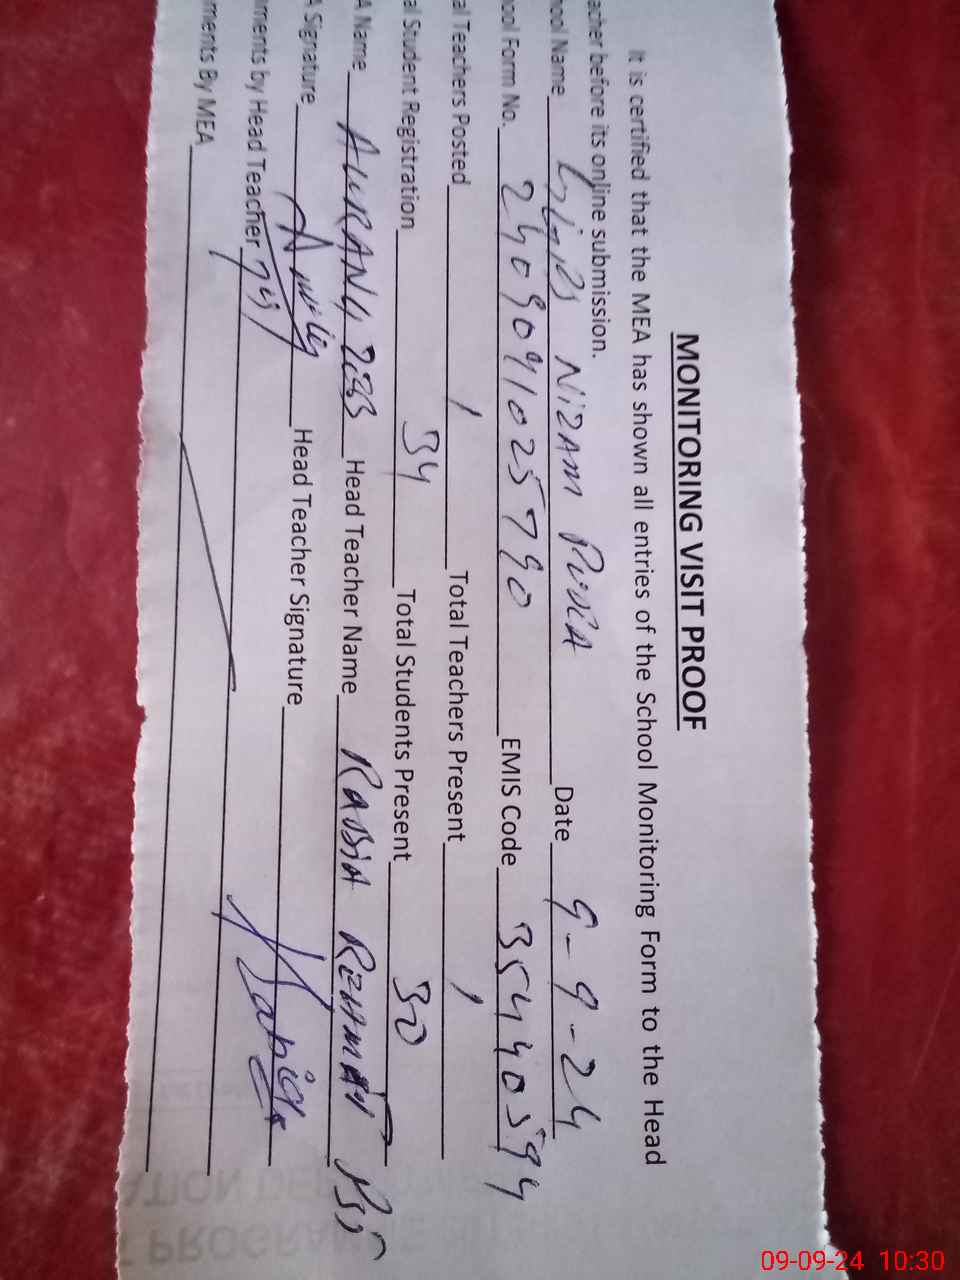 MONITORING VISIT PROOF
It is certified that the MEA has shown all entries of the School Monitoring Form to the Head
acher before its online submission.
ool Name NIZAM Date 9-9-24
ool Form No. EMIS Code 35440594
al Teachers Posted 1 Total Teachers Present 1
al Student Registration 34 Total Students Present 30
A Name Head Teacher Name RABIA REHMAT
A Signature Head Teacher Signature Rabia
ments by Head Teacher
ments By MEA
09-09-24 10:30